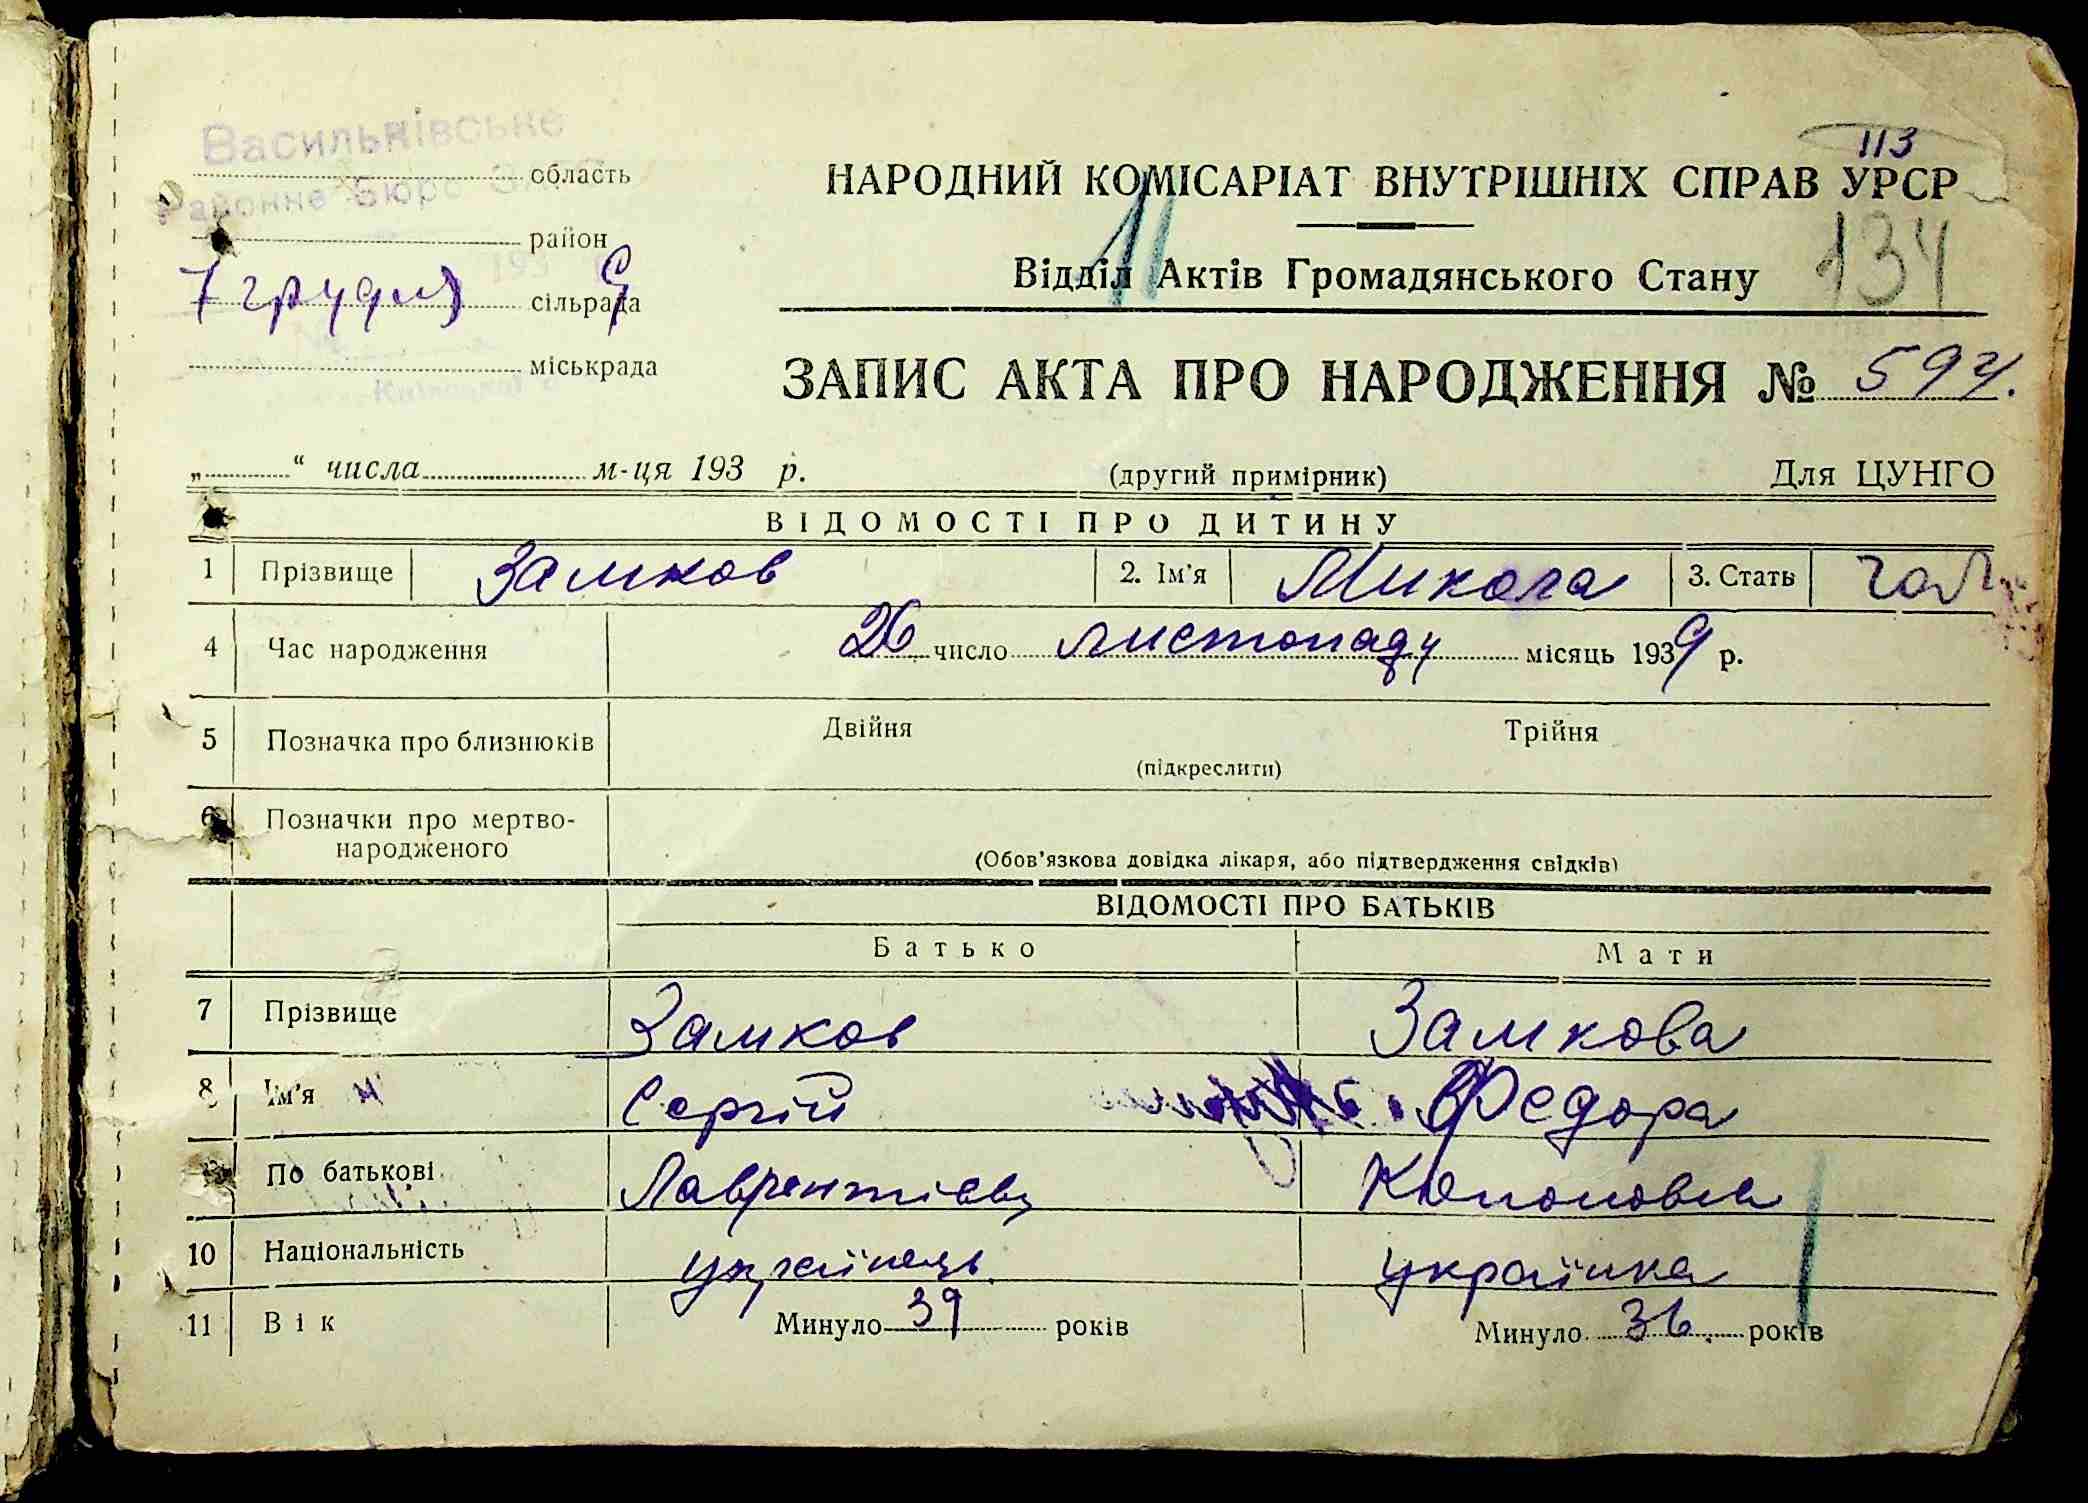 Васильківське
область
Районне Бюро ЗАГС
район
193 9
7 грудня сільрада
міськрада
Київської
113
НАРОДНИЙ КОМІСАРІАТ ВНУТРІШНІХ СПРАВ УРСР
11
134
Відділ Актів Громадянського Стану
ЗАПИС АКТА ПРО НАРОДЖЕННЯ № 594.
„ “ числа м-ця 193 р. (другий примірник) Для ЦУНГО
ВІДОМОСТІ ПРО ДИТИНУ
1 Прізвище Замков 2. Ім'я Микола 3. Стать чол
4 Час народження 26 число листопаду місяць 1939 р.
5 Позначка про близнюків Двійня Трійня
(підкреслити)
6 Позначки про мертво-
народженого
(Обов'язкова довідка лікаря, або підтвердження свідків)
ВІДОМОСТІ ПРО БАТЬКІВ
Батько Мати
7 Прізвище Замков Замкова
8 Ім'я Сергій Федора
По батькові Лаврентієвч
10 Національність українець українка
11 Вік Минуло 39 років Минуло 36 років